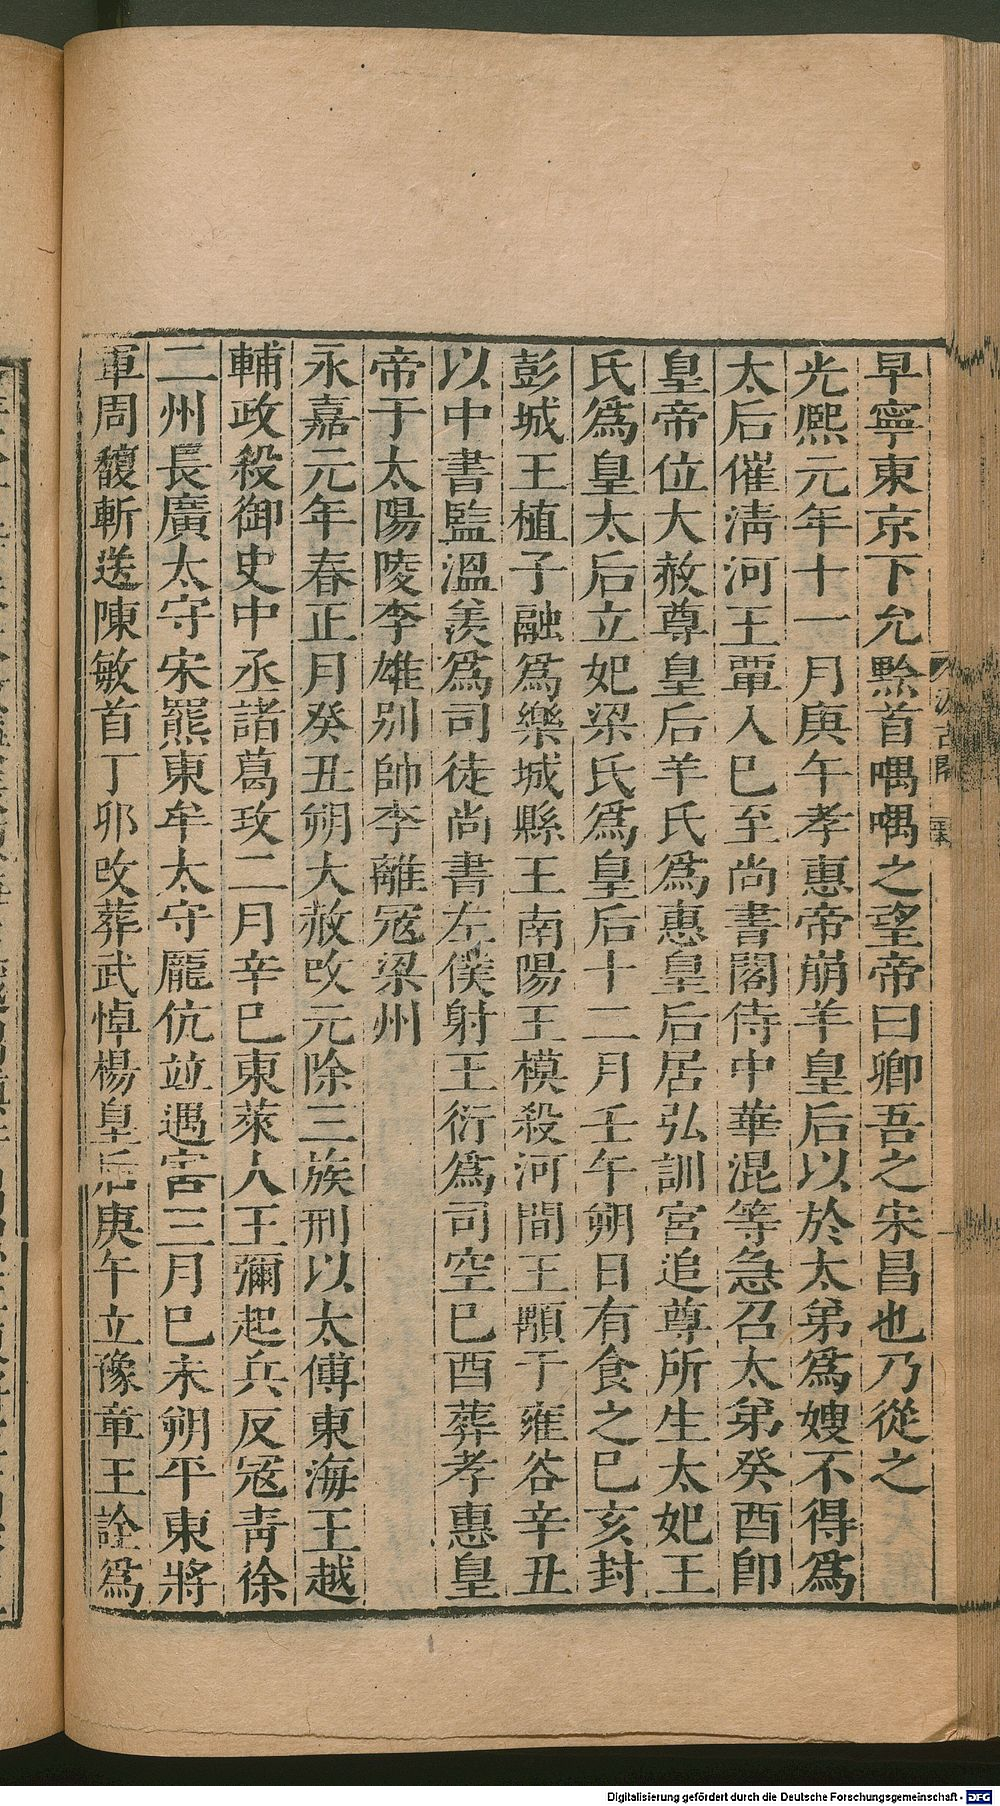 早寧東京下允黔首喁喁之望帝曰卿吾之宋昌也乃從之
光熙元年十一月庚午孝惠帝崩羊皇后以於太弟爲嫂不得爲
太后催淸河王覃入巳至尚書閣侍中華混等急召太弟癸酉卽
皇帝位大赦尊皇后羊氏爲惠皇后居弘訓宮追尊所生太妃王
氏爲皇太后立妃梁氏爲皇后十二月壬午朔日有食之巳亥封
彭城王植子融爲樂城縣王南陽王模殺河間王顒于雍谷辛丑
以中書監溫羨爲司徒尚書左僕射王衍爲司空巳酉葬孝惠皇
帝于太陽陵李雄别帥李離寇梁州
永嘉元年春正月癸丑朔大赦改元除三族刑以太傅東海王越
輔政殺御史中丞諸葛玫二月辛巳東萊人王彌起兵反寇靑徐
二州長廣太守宋羆東牟太守龐伉竝遇害三月巳未朔平東將
軍周馥斬送陳敏首丁卯改葬武悼楊皇后庚午立豫章王詮爲
汲古閣
Digitalisierung gefördert durch die Deutsche Forschungsgemeinschaft - DFG